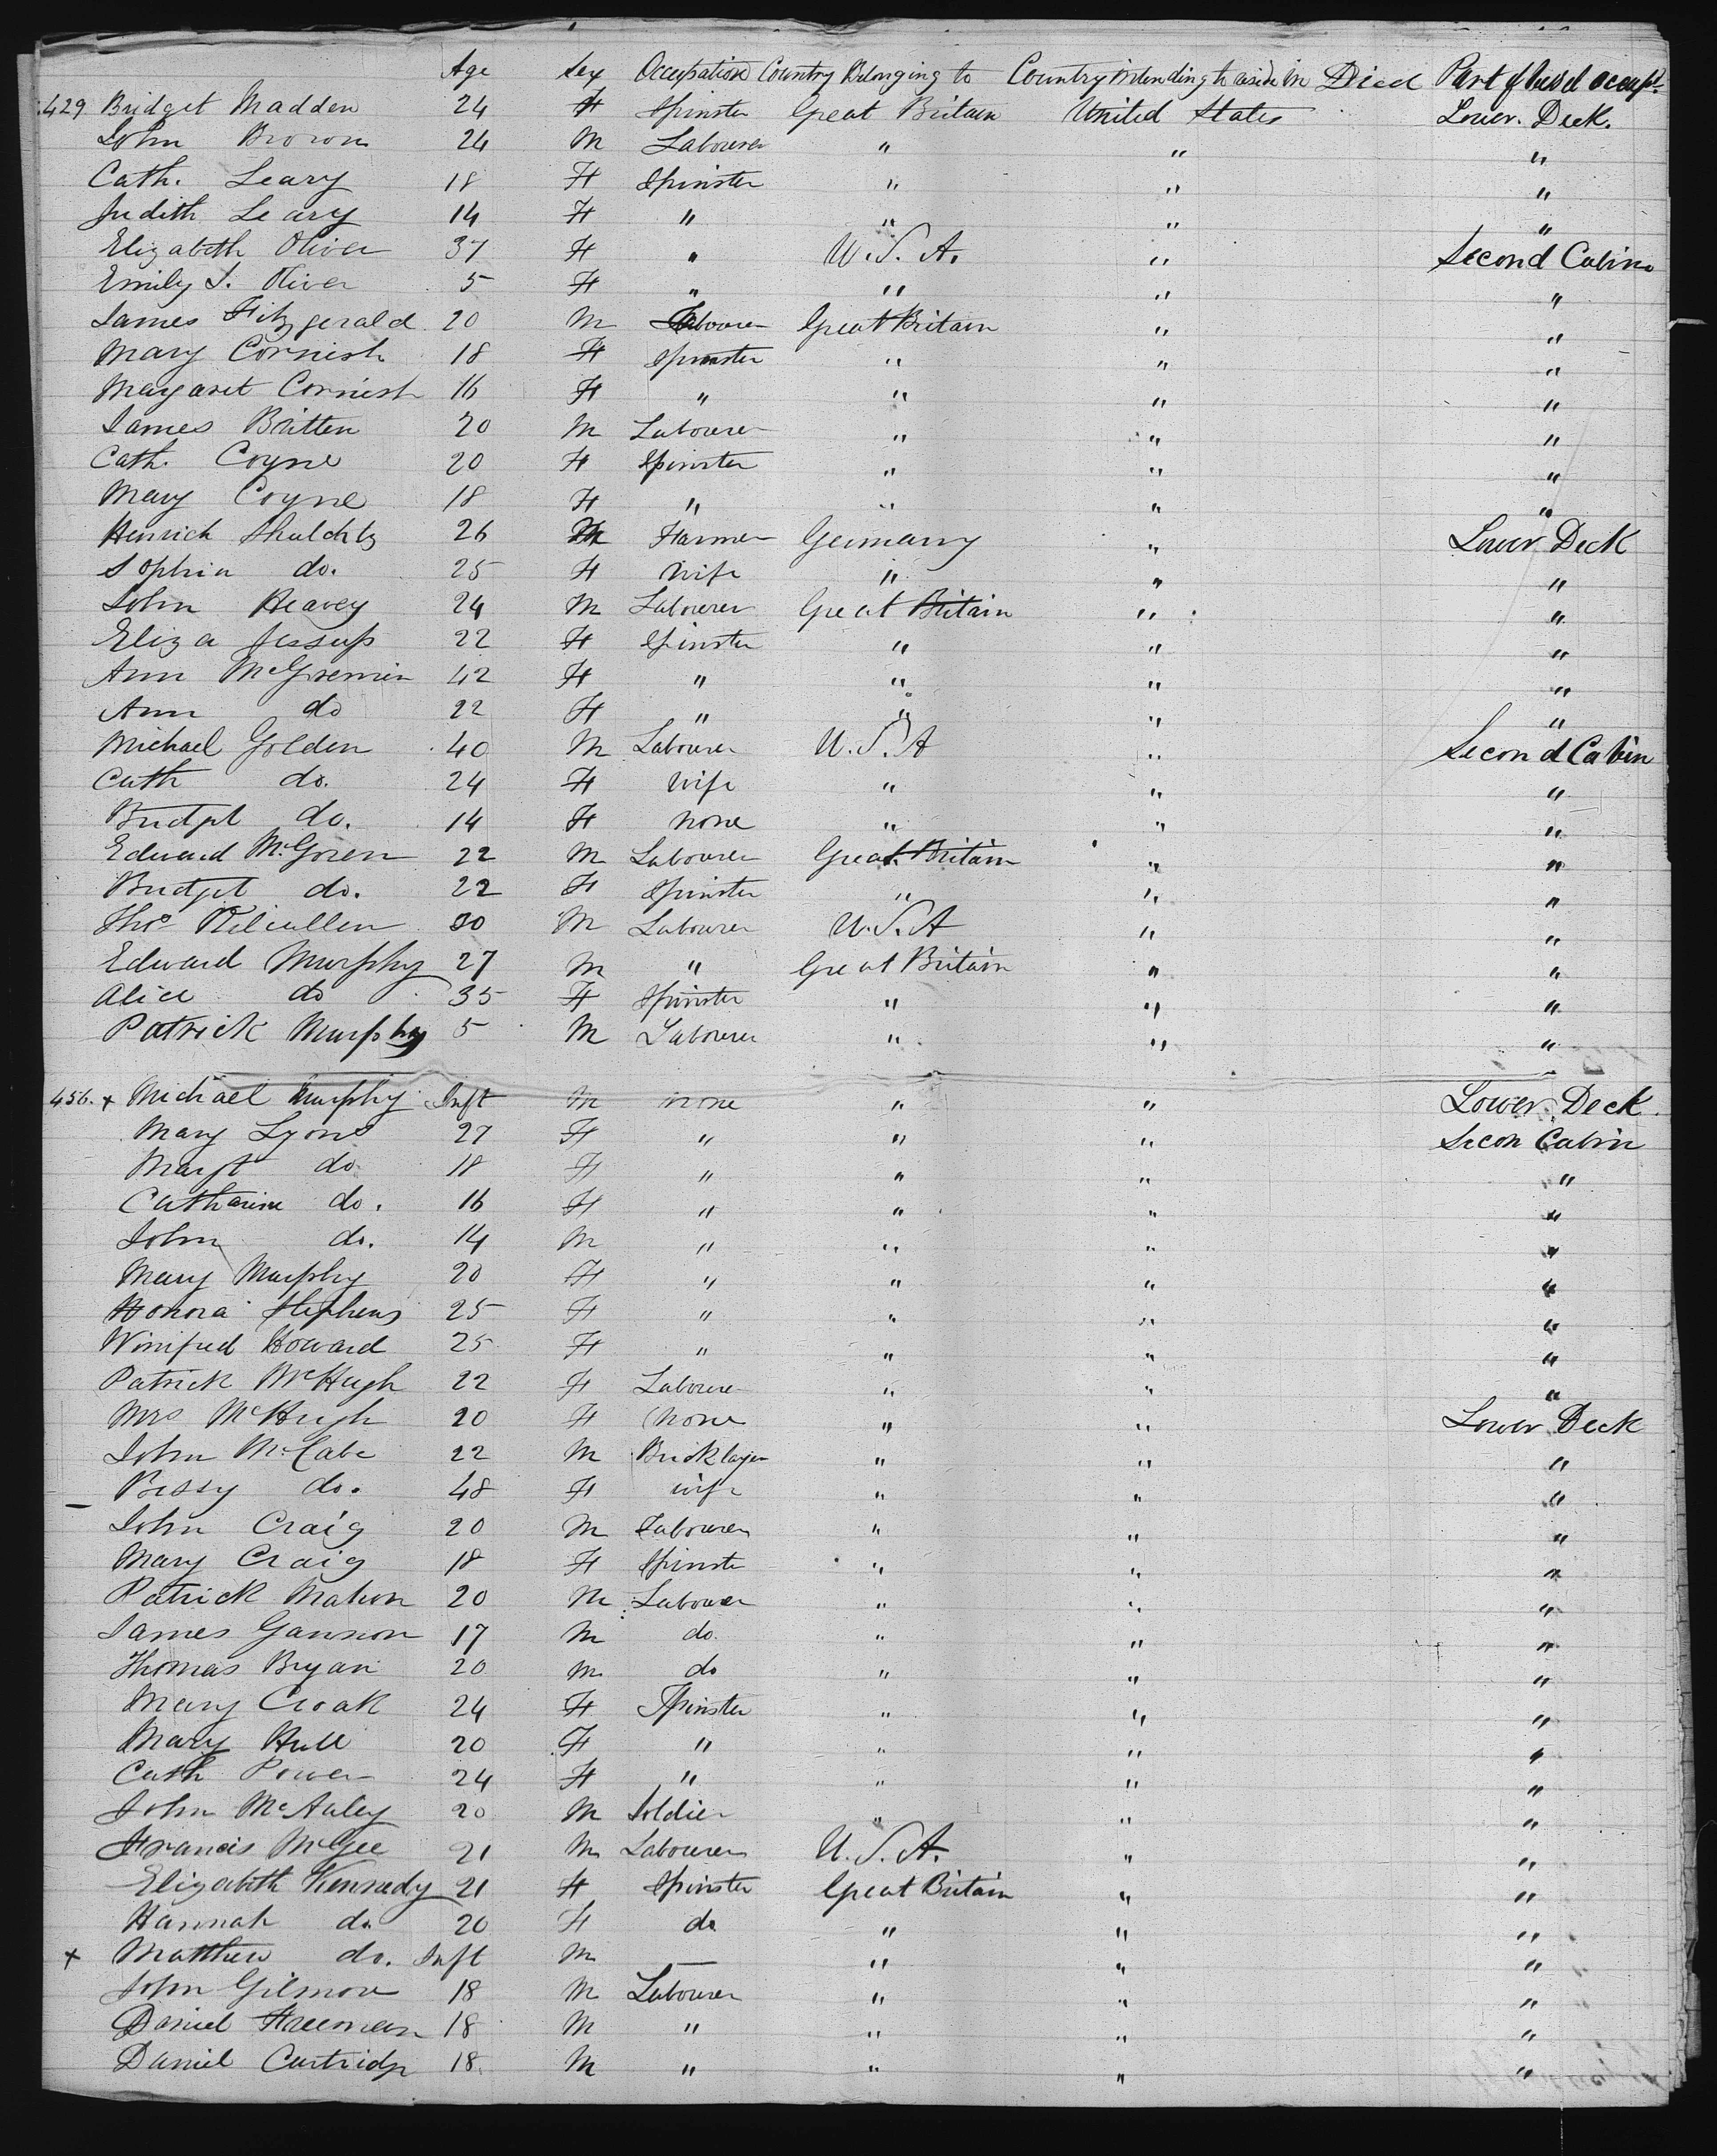 Age Sex Occupation Country Belonging to Country intending to reside in Died Part of Vessel occupd.
429. Bridget Madden 24 F Spinster Great Britain United States Lower Deck.
John Brown 24 M Labourer " " "
Cath. Leary 18 F Spinster " " "
Judith Leary 14 F " " " "
Elizabeth Oliver 37 F " U.S.A. " Second Cabin
Emily S. Oliver 5 F " " " "
James Fitzgerald 20 M Labourer Great Britain " "
Mary Cornish 18 F Spinster " " "
Margaret Cornish 16 F " " " "
James Britten 20 M Labourer " " "
Cath. Coyne 20 F Spinster " " "
Mary Coyne 18 F " " " "
Henrich 26 M Farmer Germany " Lower Deck
Sophia do. 25 F Wife " " "
John Heavey 24 M Labourer Great Britain " "
Eliza Jessup 22 F Spinster " " "
Ann 42 F " " " "
Ann do 22 F " " " "
Michael Golden 40 M Labourer U.S.A " Second Cabin
Cath do. 24 F Wife " " "
Bridget do. 14 F None " " "
Edward McGoren 22 M Labourer Great Britain " "
Bridget do. 22 F Spinster " " "
Thos Kilcullen 30 M Labourer U.S.A " "
Edward Murphy 27 M " Great Britain " "
Alice do 35 F Spinster " " "
Patrick Murphy 5 M Labourer " " "
456. x Michael Murphy Inft M none " " Lower Deck.
Mary Lyons 27 F " " " Secon Cabin
Margt do. 18 F " " " "
Catharine do. 16 F " " " "
John do. 14 M " " " "
Mary Murphy 20 F " " " "
Honora Stephens 25 F " " " "
Winifred Howard 25 F " " " "
Patrick McHugh 22 F Laboure " " "
Mrs McHugh 20 F None " " Lower Deck
John McCabe 22 M Bricklayer " " "
Bessy do. 48 F wife " " "
John Craig 20 M Labourer " " "
Mary Craig 18 F Spinster " " "
Patrick Mahon 20 M Labourer " " "
James Gannon 17 M do. " " "
Thomas Bryan 20 M do " " "
Mary Croak 24 F Spinster " " "
Mary Hull 20 F " " " "
Cath Power 24 F " " " "
John McAuley 20 M Soldier " " "
Francis McGee 21 M Labourer U.S.A. " "
Elizabeth Kennedy 21 F Spinster Great Britain " "
Hannah do. 20 F do " " "
x Matthew do. Inft M — " " "
John Gilmore 18 M Labourer " " "
Daniel Freeman 18 M " " " "
Daniel Cartridge 18. M " " " "